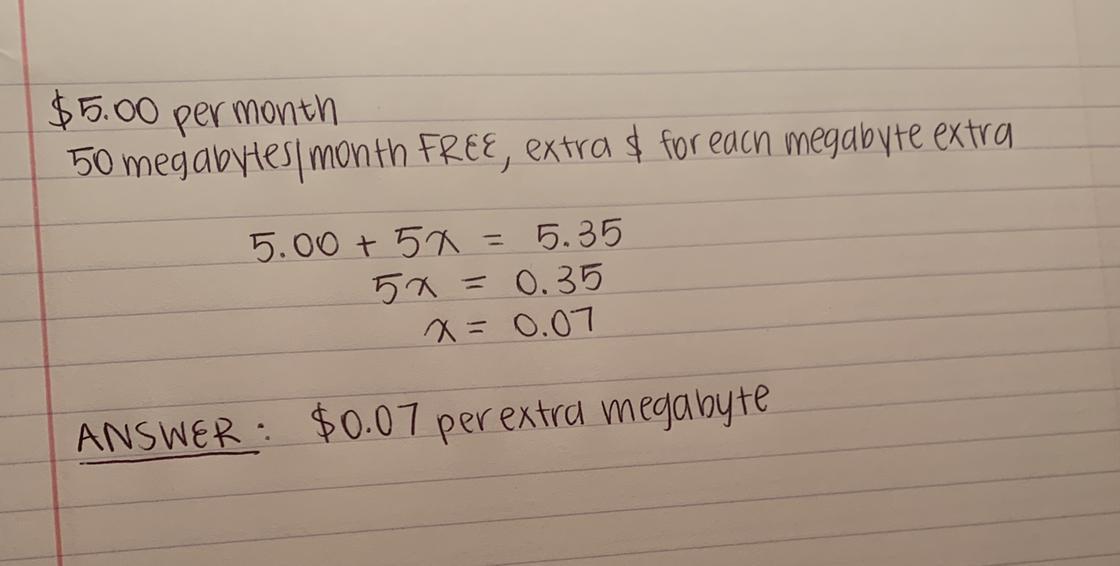 $5.00 per month
50 megabytes/month FREE, extra $ for each megabyte extra
5.00 + 5x = 5.35
5x = 0.35
x = 0.07
ANSWER: $0.07 per extra megabyte